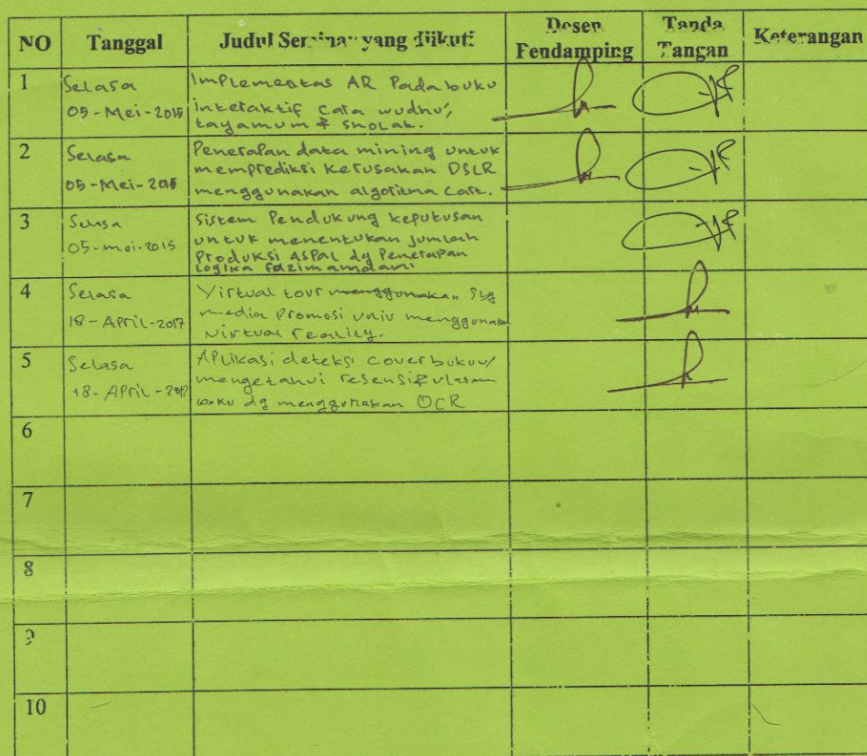 NO Tanggal Judul Seminar yang diikuti Dosen Pendamping Tanda Tangan Keterangan
1 Selasa 05-Mei-2015 Implementas AR Pada buku
interaktif cara wudhu,
tayamum & sholat.
2 Selasa 05-Mei-2015 Penerapan data mining untuk
memprediksi kerusakan DSLR
menggunakan algoritma Cart.
3 05-mei-2015 Sistem Pendukung keputusan
untuk menentukan jumlah
Produksi ASPal dg Penerapan
Logika
4 Selasa 18-April-2017 Virtual tour menggunakan sbg
media Promosi univ menggunakan
virtual reality.
5 Selasa 18-April-2017 APlikasi deteksi cover buku u/
mengetahui resensi & ulasan
buku dg menggunakan OCR
6
7
8
9
10